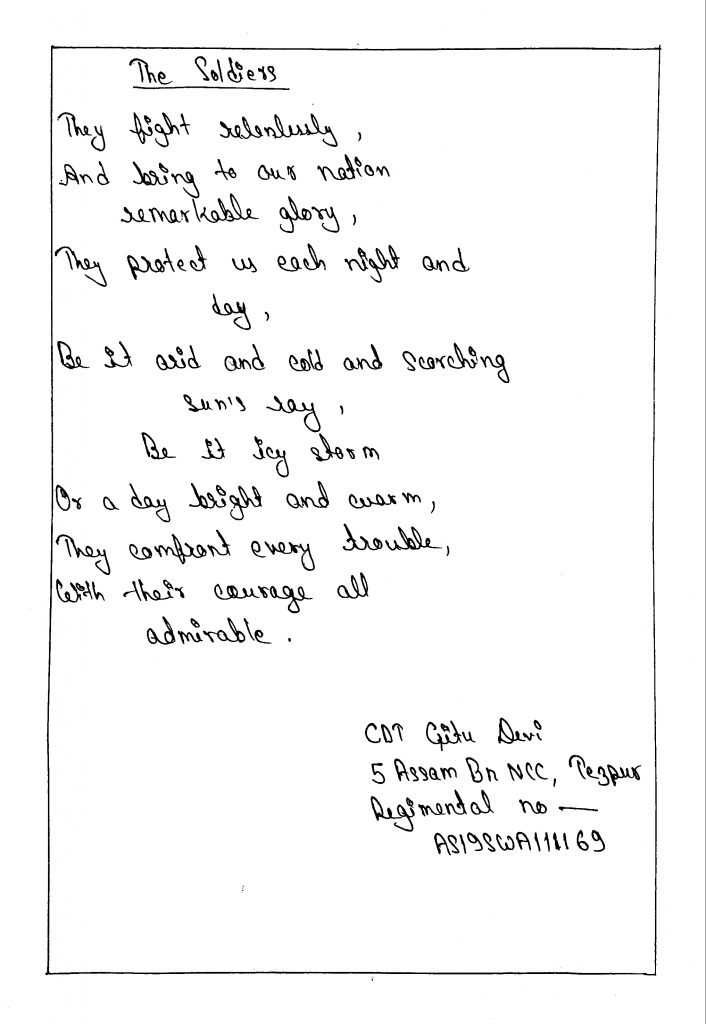 The Soldiers
They fight relenlessly,
And bring to our nation
remarkable glory,
They protect us each night and
day,
Be it arid and cold and scorching
sun's ray,
Be it icy storm
Or a day bright and warm,
They comfront every trouble,
With their courage all
admirable.
CDT Gitu Devi
5 Assam Bn NCC, Tezpur
Regimental no —
AS19SWA111169